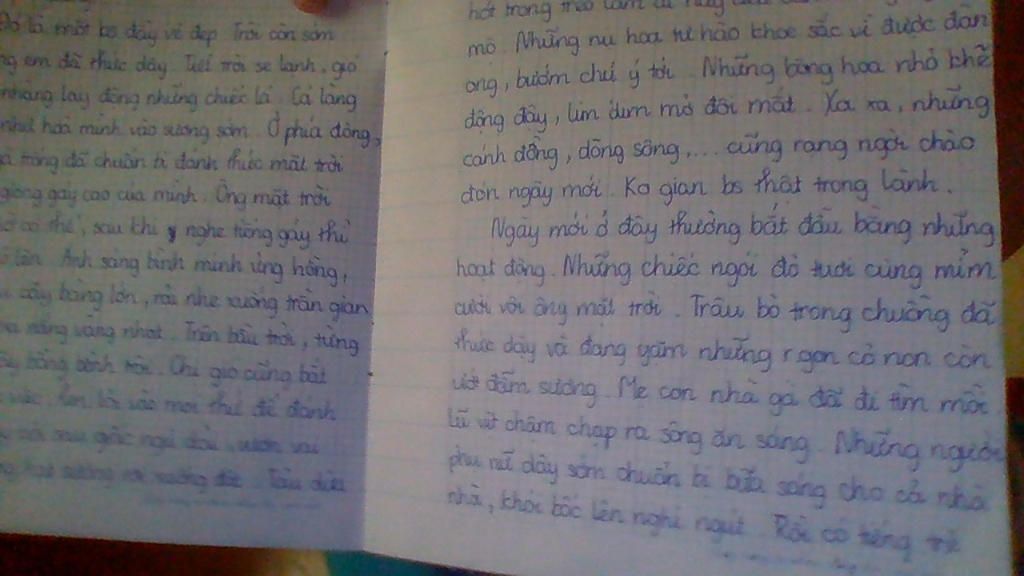 là một bs đầy vẻ đẹp. Trời còn sớm
em đã thức dậy. Tiết trời se lạnh, gió
nhàng lay động những chiếc lá. Cả làng
như hoà mình vào sương sớm. Ở phía đông,
trống đã chuẩn bị đánh thức mặt trời
giọng gáy cao của mình. Ông mặt trời
có thế, sau khi nghe tiếng gáy thì
lên. Ánh sáng bình minh ửng hồng,
cây bàng lớn, rải nhẹ xuống trần gian
nắng vàng nhạt. Trên bầu trời, từng
bồng bềnh trôi. Chị gió cũng bắt
vào mọi thứ để đánh
sau giấc ngủ dài, vươn vai
sương rơi xuống đất.
hót trong trẻo
mô. Những nụ hoa tự hào khoe sắc vì được đàn
ong, bướm chú ý tới. Những bông hoa nhỏ khẽ
động đậy, lim dim mở đôi mắt. Xa xa, những
cánh đồng, dòng sông,... cũng rạng ngời chào
đón ngày mới. Ko gian bs thật trong lành.
Ngày mới ở đây thường bắt đầu bằng những
hoạt động. Những chiếc ngói đỏ tươi cùng mỉm
cười với ông mặt trời. Trâu bò trong chuồng đã
thức dậy và đang gặm những ngọn cỏ non còn
ướt đẫm sương. Mẹ con nhà gà đã đi tìm mồi.
Lũ vịt chậm chạp ra sông ăn sáng. Những người
phụ nữ dậy sớm chuẩn bị bữa sáng cho cả nhà
nhà, khói bốc lên nghi ngút. Rồi có tiếng trẻ